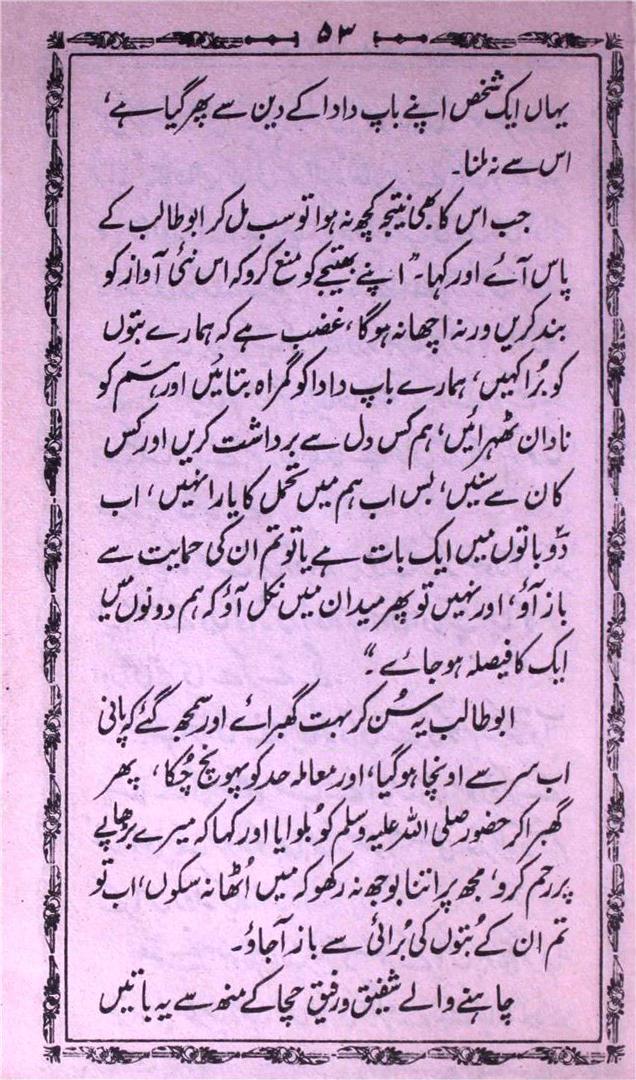 ۵۳
یہاں ایک شخص اپنے باپ دادا کے دین سے پھر گیا ہے،
اس سے نہ ملنا۔
جب اس کا بھی نتیجہ کچھ نہ ہوا تو سب مل کر ابو طالب کے
پاس آئے اور کہا۔ "اپنے بھتیجے کو منع کرو کہ اس نئی آواز کو
بند کریں ورنہ اچھا نہ ہوگا، غضب ہے کہ ہمارے بتوں
کو بُرا کہیں، ہمارے باپ دادا کو گمراہ بتائیں اور ہسَم کو
نادان ٹھہرائیں، ہم کس دل سے برداشت کریں اور کس
کان سے سنیں، بس اب ہم میں تحمل کا یارا نہیں، اب
دَو باتوں میں ایک بات ہے یا تو تم ان کی حمایت سے
باز آؤ، اور نہیں تو پھر میدان میں نکل آؤ کہ ہم دونوں میں
ایک کا فیصلہ ہو جائے۔"
ابو طالب یہ سُن کر بہت گھبرائے اور سمجھ گئے کہ پانی
اب سر سے اونچا ہو گیا، اور معاملہ حد کو پہونچ چُکا، پھر
گھبرا کر حضور صلی اللہ علیہ وسلم کو بُلوایا اور کہا کہ میرے بڑھاپے
پر رحم کرو، مجھ پر اتنا بوجھ نہ رکھو کہ میں اُٹھا نہ سکوں، اب تو
تم ان کے بُتوں کی بُرائی سے باز آجاؤ۔
چاہنے والے شفیق و رفیق چچا کے منھ سے یہ باتیں